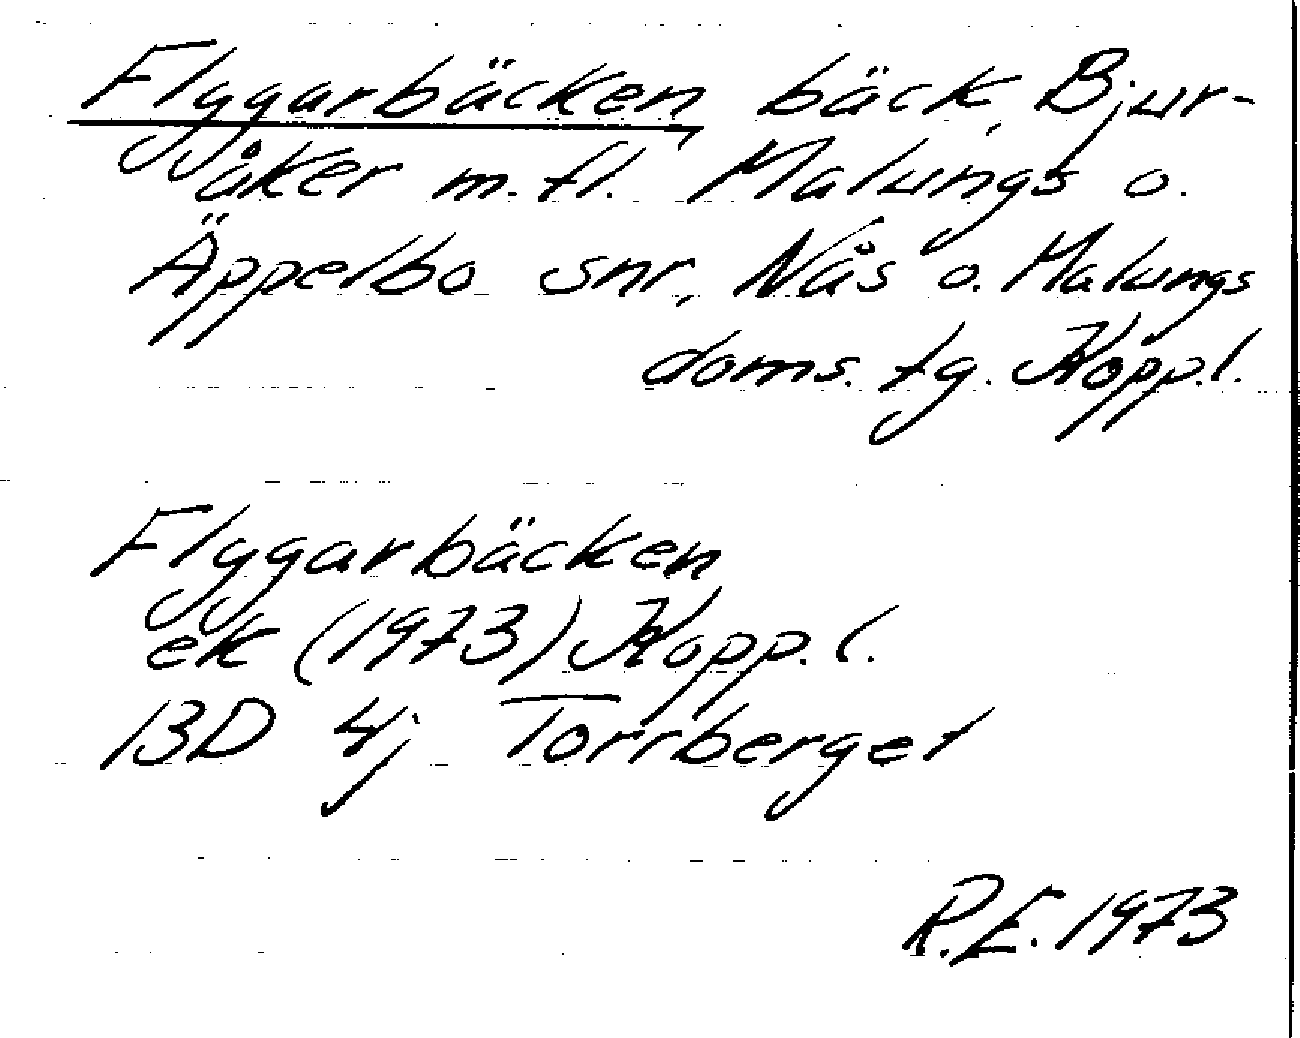 Flyggarbäcken, bäck, Bjur-
åker m.fl. Malungs o.
Äppelbo snr, Nås o. Malungs
doms. tg. Kopp.l.
Flyggarbäcken
ek (1973) Kopp. l.
13D 4j Torrberget
R.E. 1973